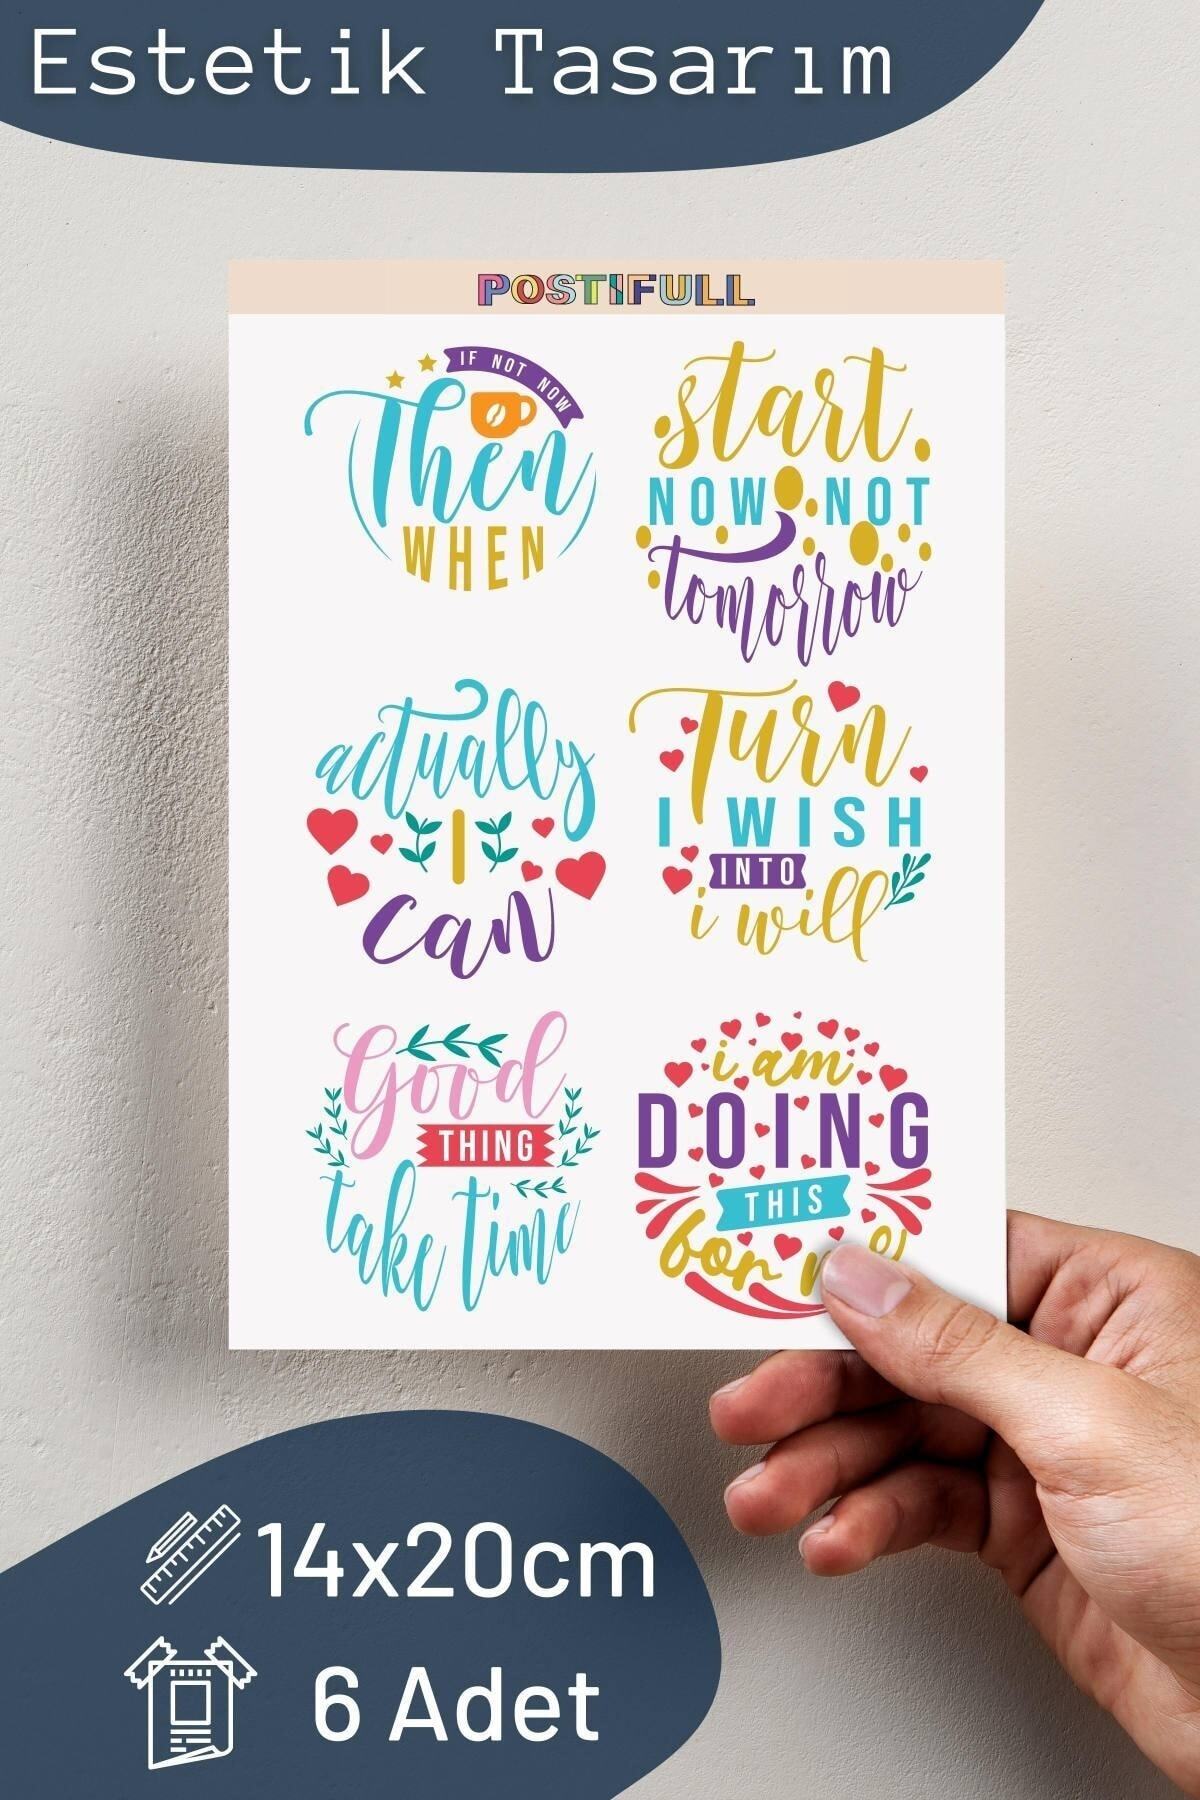 Estetik Tasarım
POSTIFULL
IF NOT NOW
Then
WHEN
start
NOW NOT
tomorrow
actually
I
can
Turn
I WISH
INTO
i will
Good
THING
take time
i am
DOING
THIS
for
14x20cm
6 Adet